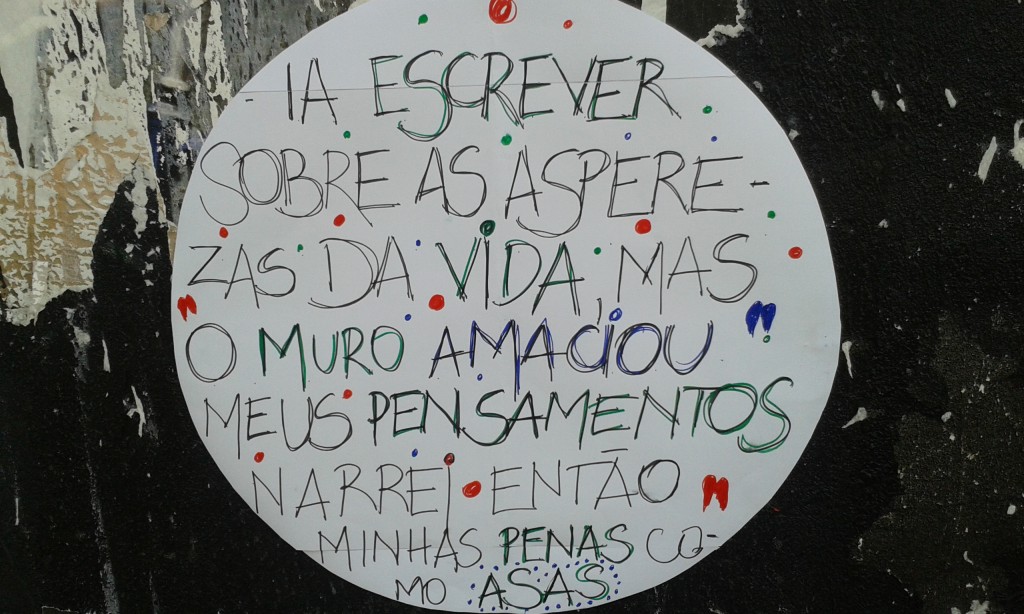 IA ESCREVER
SOBRE AS ASPERE-
ZAS DA VIDA, MAS
"O MURO AMACIOU"
MEUS PENSAMENTOS
NARREI ENTÃO "
MINHAS PENAS CO-
MO ASAS